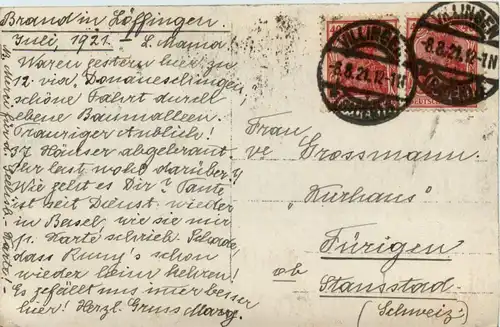 Brand in Löffingen
Juli, 1921. L. Mama!
Waren gestern hier zu
12 via. Donaueschingen,
schöne Fahrt durch
ebene Baumalleen.
Trauriger Anblick!
37 Häuser abgebrannt.
Ihr last wohl darüber?
Wie geht es Dir? Tante
ist seit Dienst. wieder
in Basel, wie sie mir
p. Karte schrieb. Schade,
dass Runy's schon
wieder heim kehren!
Es gefällt uns immer besser
hier! Herzl. Gruss Marg.
VILLINGEN
-8.8.21.12-1N
VILLINGEN
-8.8.21.12-1N
Frau
ve Grossmann.
"Kurhaus"
Fürigen
ob
Stansstad.
(Schweiz)